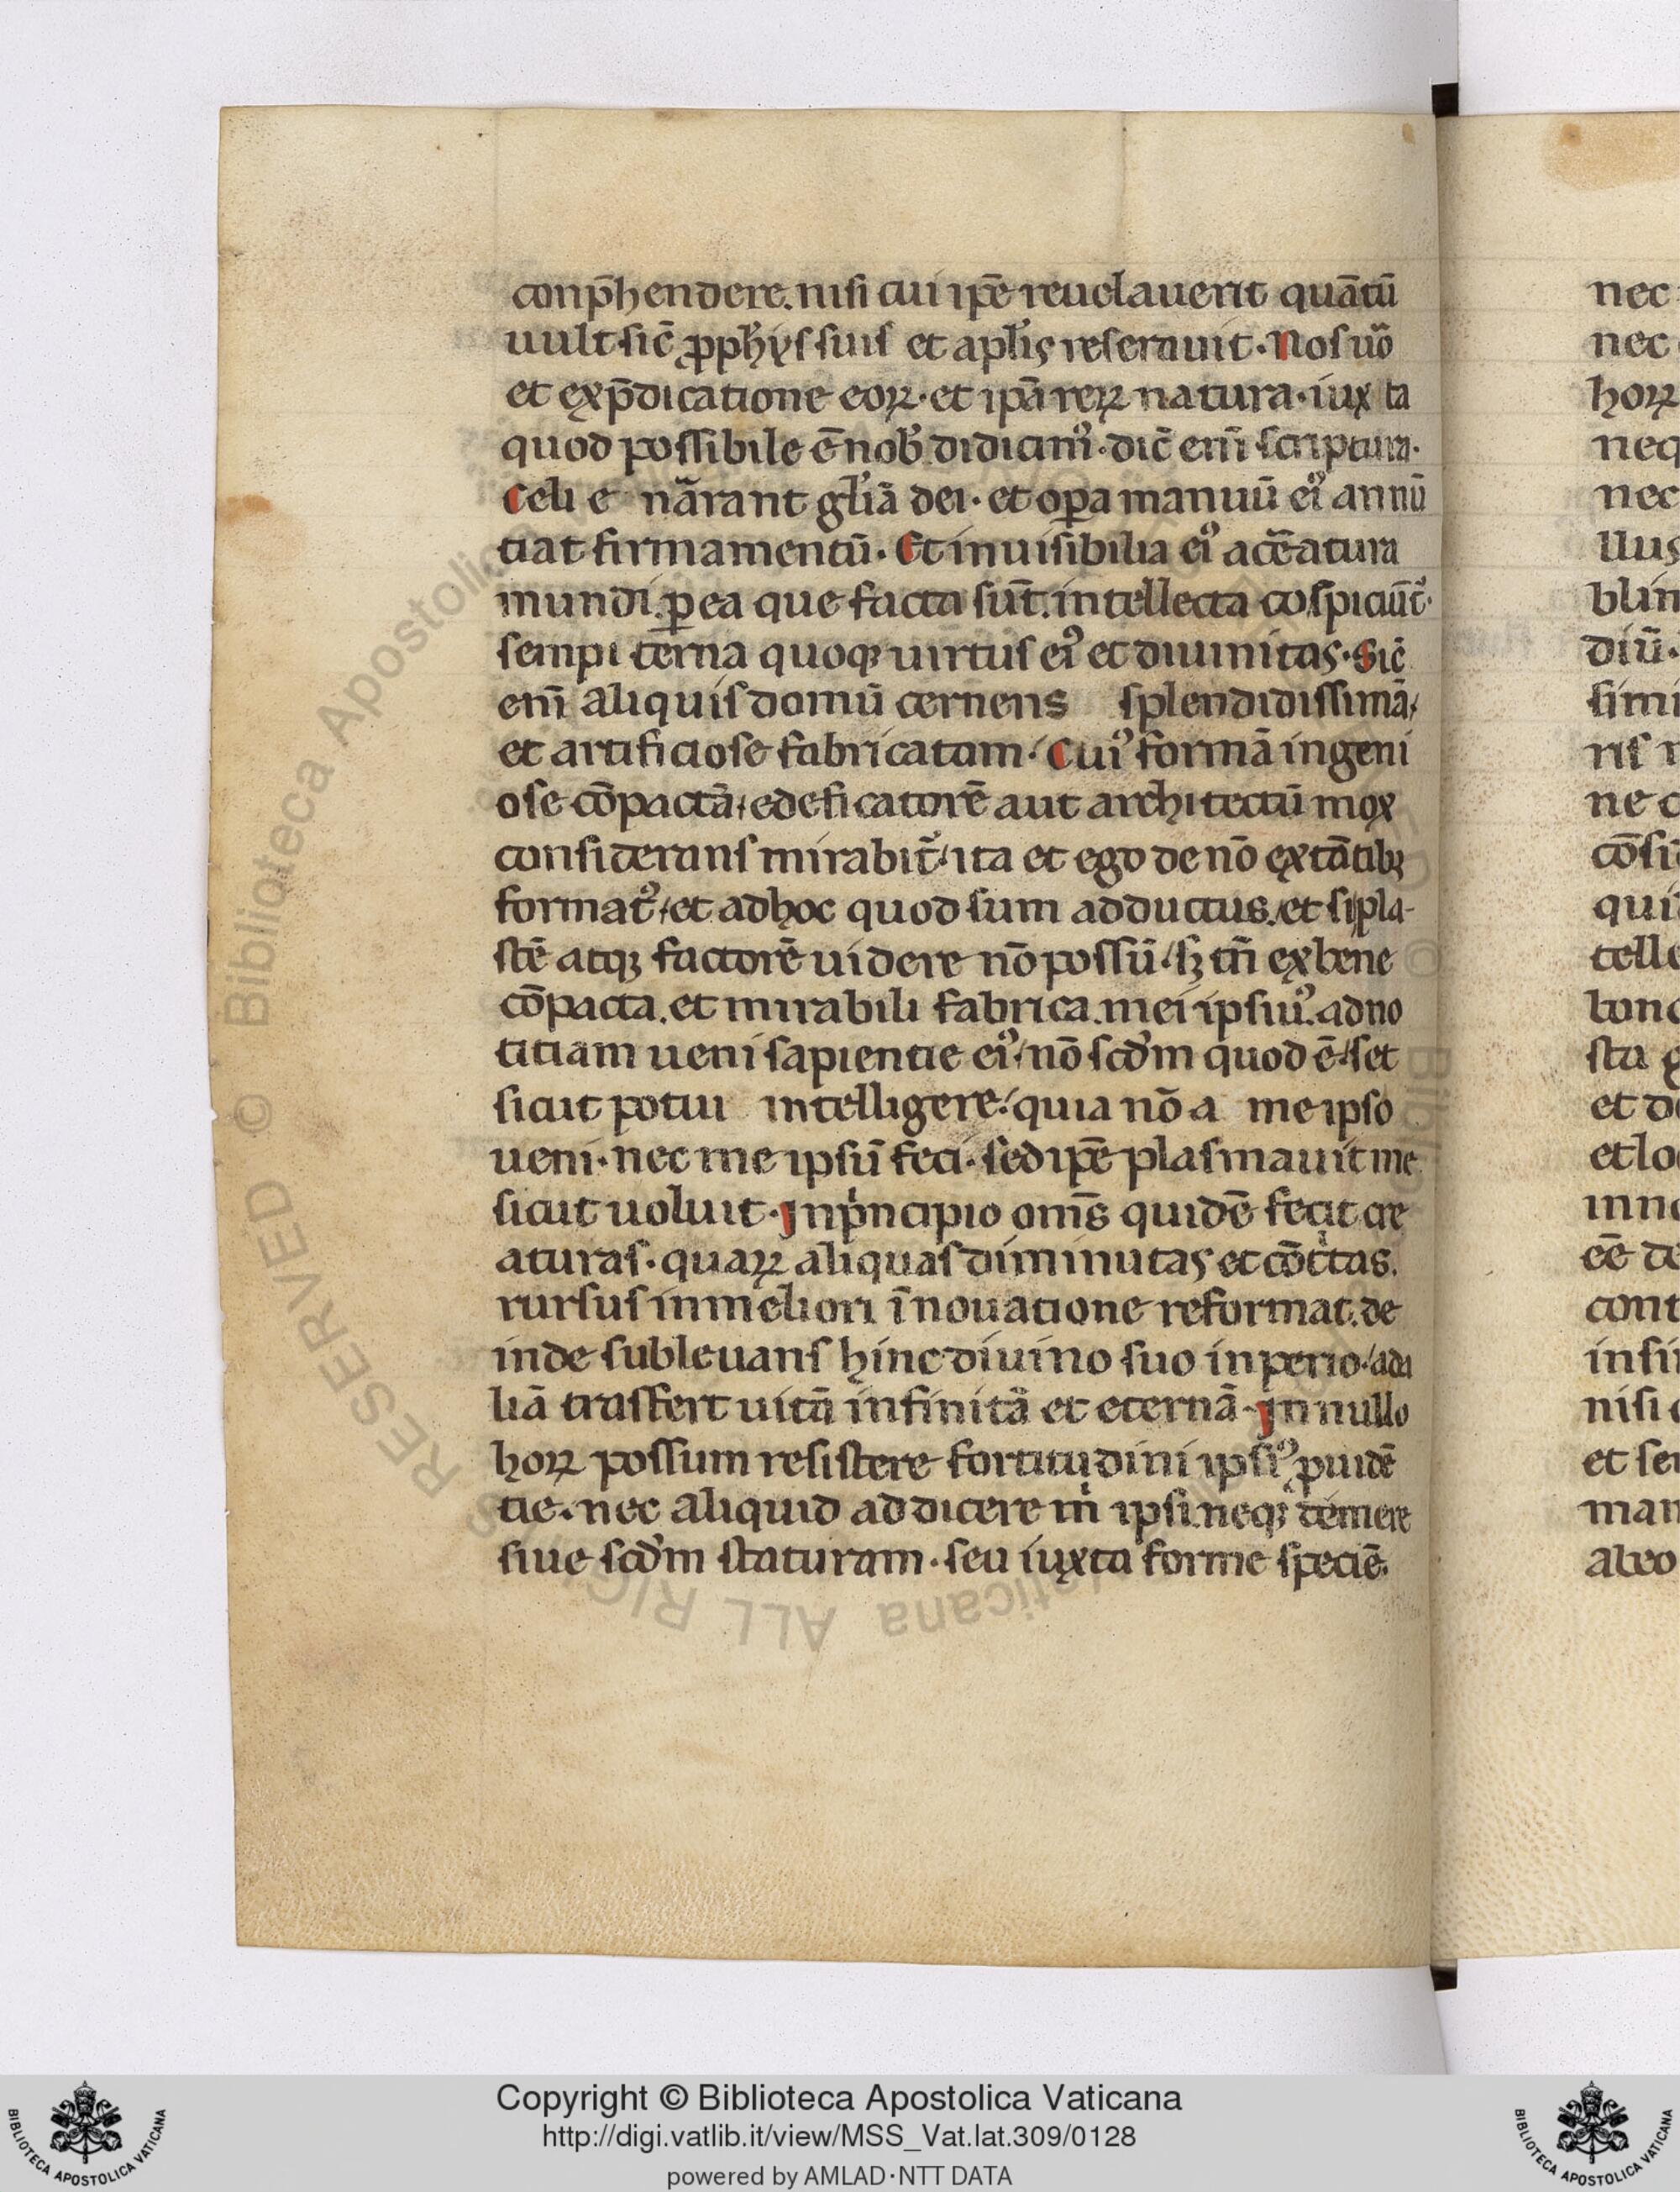 conp̄hendere. nisi cui ip̄e reuelauerit quātū
uult sic̄ ꝓph̓ys suis et apl̓is reserauit. Nos uo̊
et exp̄dicatione eoꝝ. et ipā reꝝ natura. iuxta
quod possibile ē nob̓ didicim᷒. dic̄ eni̅ scriptura.
Celi e nārant gl̓iā dei. et oꝑa manuū ei᷒ annū
tiat firmamentū. Et inuisibilia ei᷒ a cr̄eatura
mundi. ꝑ ea que facta sūt. intellecta cospiciūt᷒.
sempi terna quoqꝫ uirtus ei᷒ et diuinitas. Sic̄
eni̅ aliquis domū cernens splendidissimā/
et artificiose fabricatam. Cui᷒ formā ingeni
ose cōpactā/ edeficatorē aut architectū mox
considerans mirabit᷒/ ita et ego de nō extātibꝫ
format᷒/ et ad hoc quod sum adductus. et si pla-
stē atqꝫ factorē uidere nō possū/ sꝫ tn̄ ex bene
cōpacta. et mirabili fabrica. mei ipsiu᷒. ad no
titiam ueni sapientie ei᷒/ nō scd̓m quod ē/ set
sicut potui intelligere/ quia nō a me ipso
ueni. nec me ipsū feci. sed ip̄e plasmauit me
sicut uoluit. In pⁱncipio om̄s quidē fecit cre
aturas. quaꝝ aliquas diminutas et cōtⁱtas.
rursus in meliori īnouatione reformat. de
inde subleuans hinc diuino suo inperio/ ad a
liā trasfert uitā infinitā et eternā. In nullo
hoꝝ possum resistere fortitudini ipsi᷒ ꝓuidē
tie. nec aliquid addicere mⁱ ipsi. neqꝫ temere
siue scd̓m staturam. seu iuxta forme speciē.
nec
nec
hoꝝ
neq
nec
llus
blin
diū.
simi
ris
ne c
cōsi
qui
telle
bon
stu
et d
et lo
inno
eē de
cont
insi
nisi
et se
man
abo
Copyright © Biblioteca Apostolica Vaticana
http://digi.vatlib.it/view/MSS_Vat.lat.309/0128
powered by AMLAD·NTT DATA
BIBLIOTECA APOSTOLICA VATICANA
BIBLIOTECA APOSTOLICA VATICANA